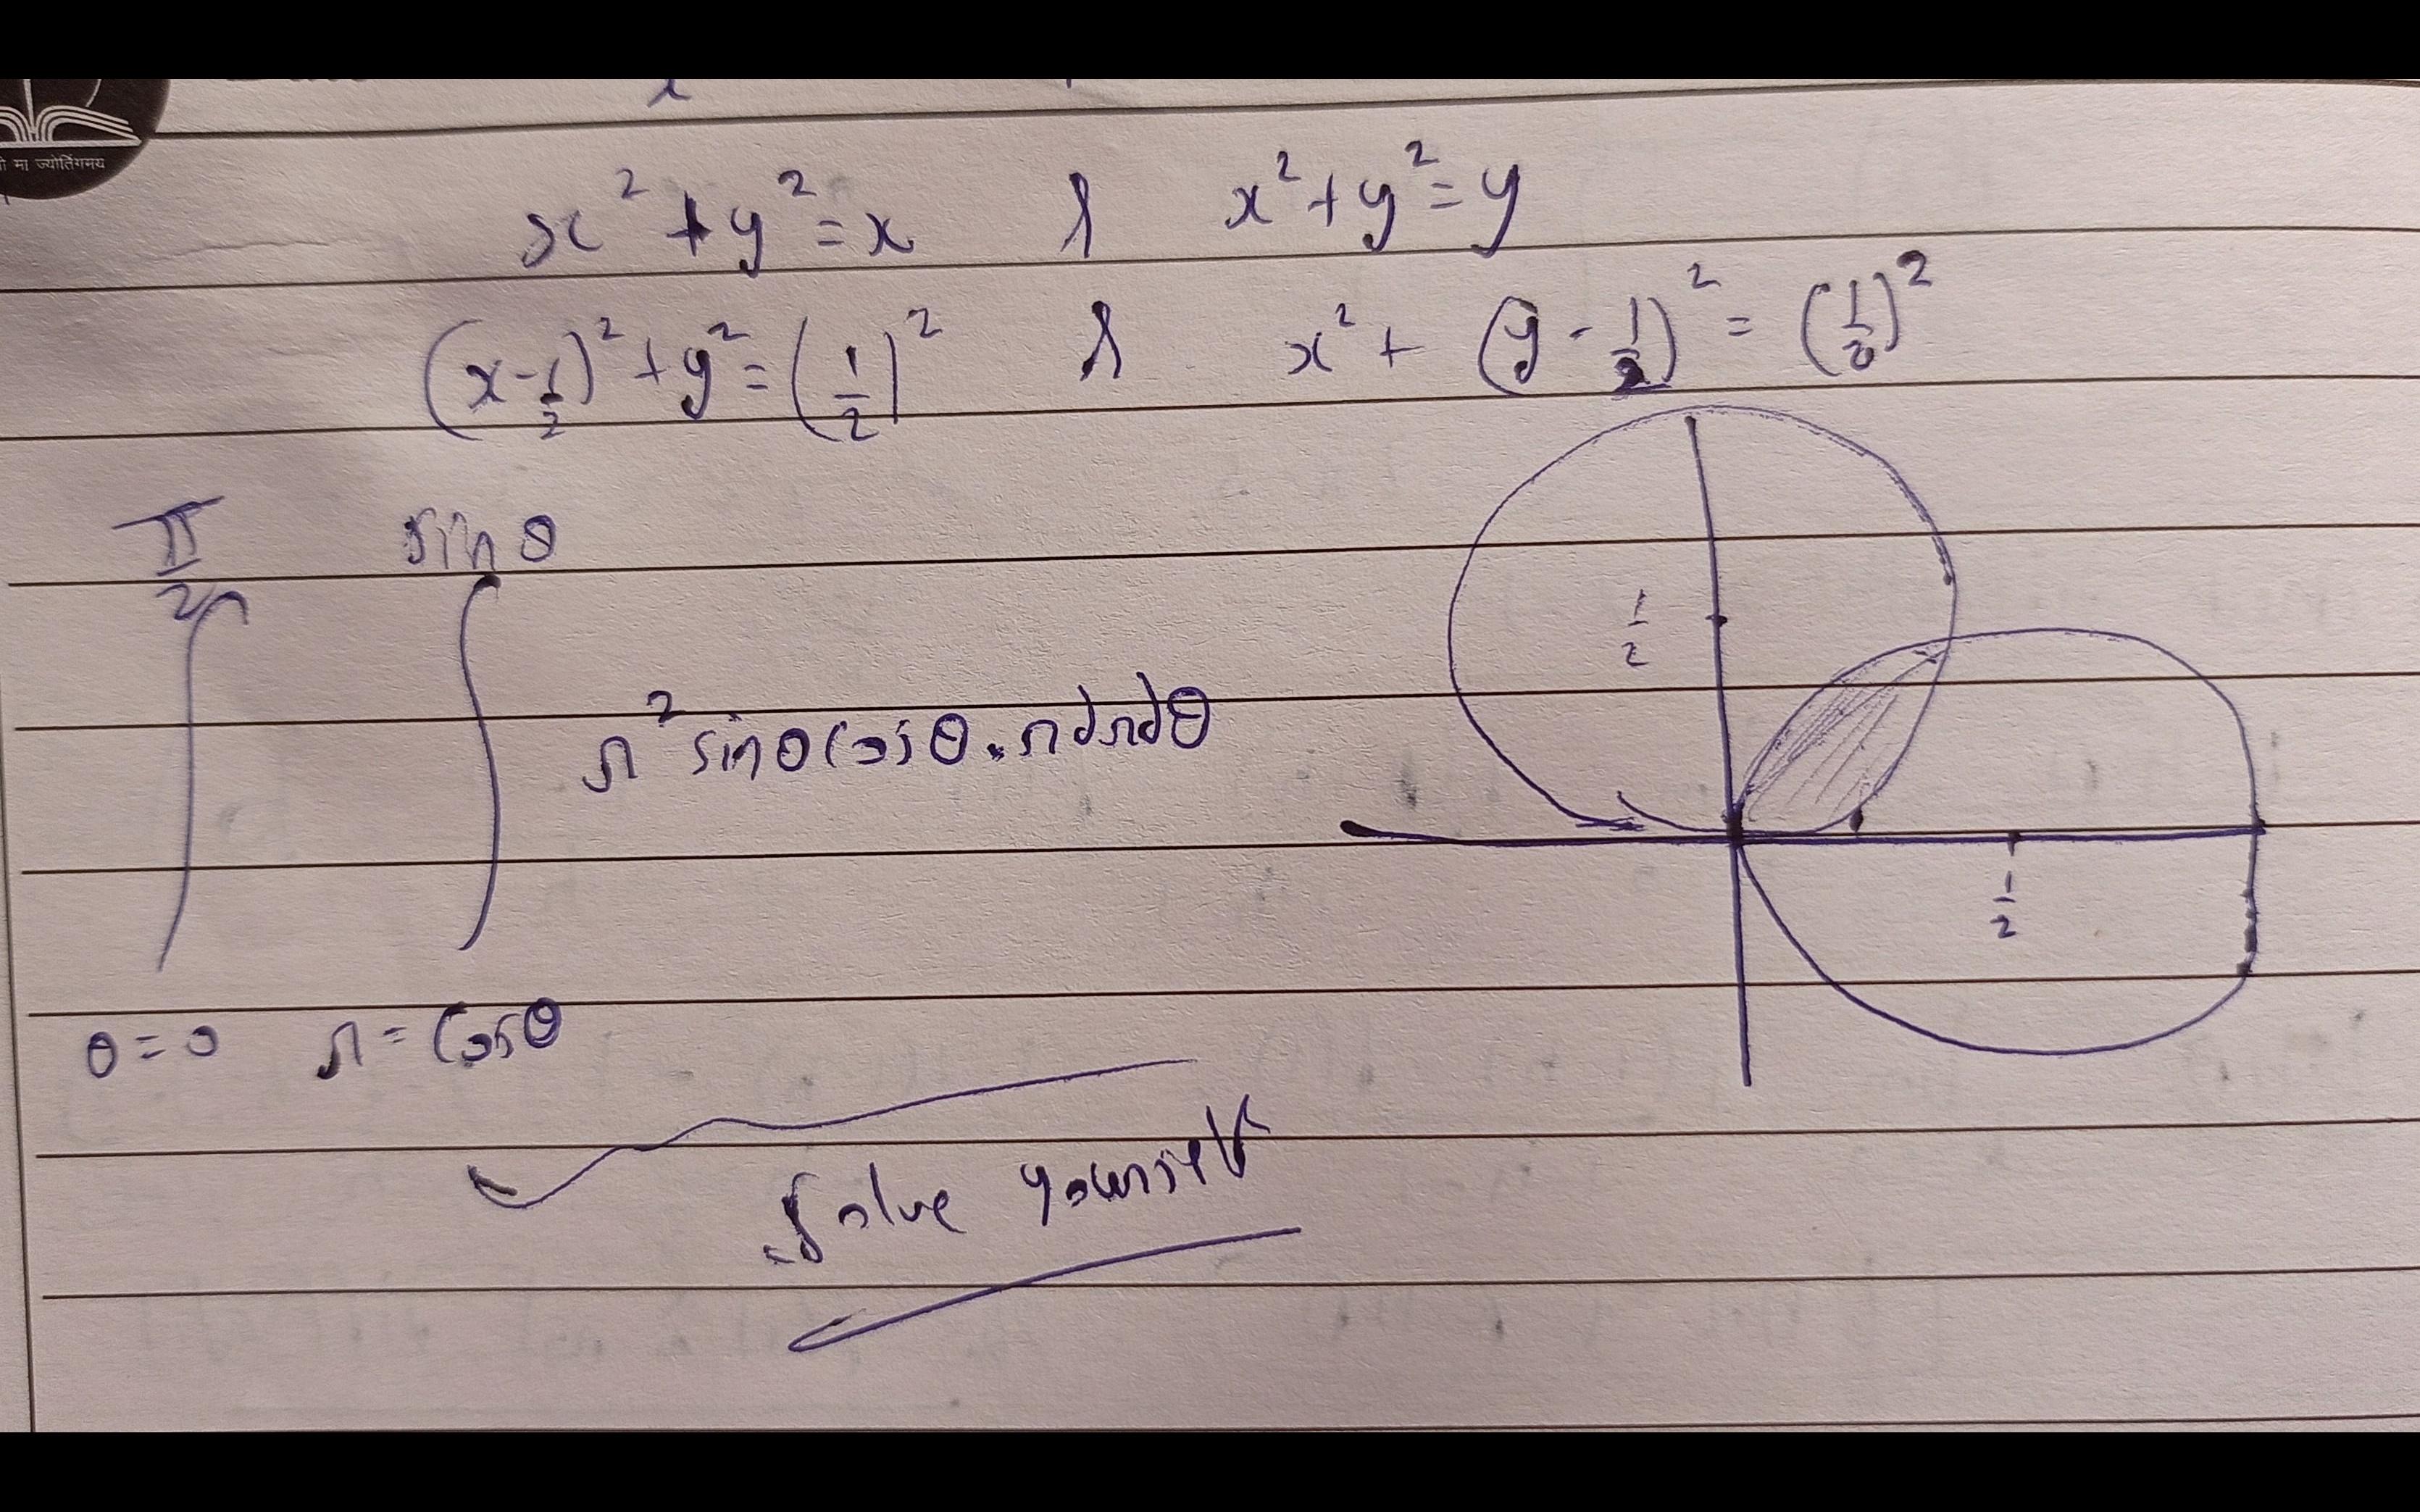 मा ज्योतिर्गमय
x² + y² = x & x² + y² = y
(x - 1/2)² + y² = (1/2)² & x² + (y - 1/2)² = (1/2)²
π/2 sin θ
∫ ∫ r² sin θ cos θ . r dr dθ
θ = 0 r = cos θ
1/2
1/2
Solve yourself